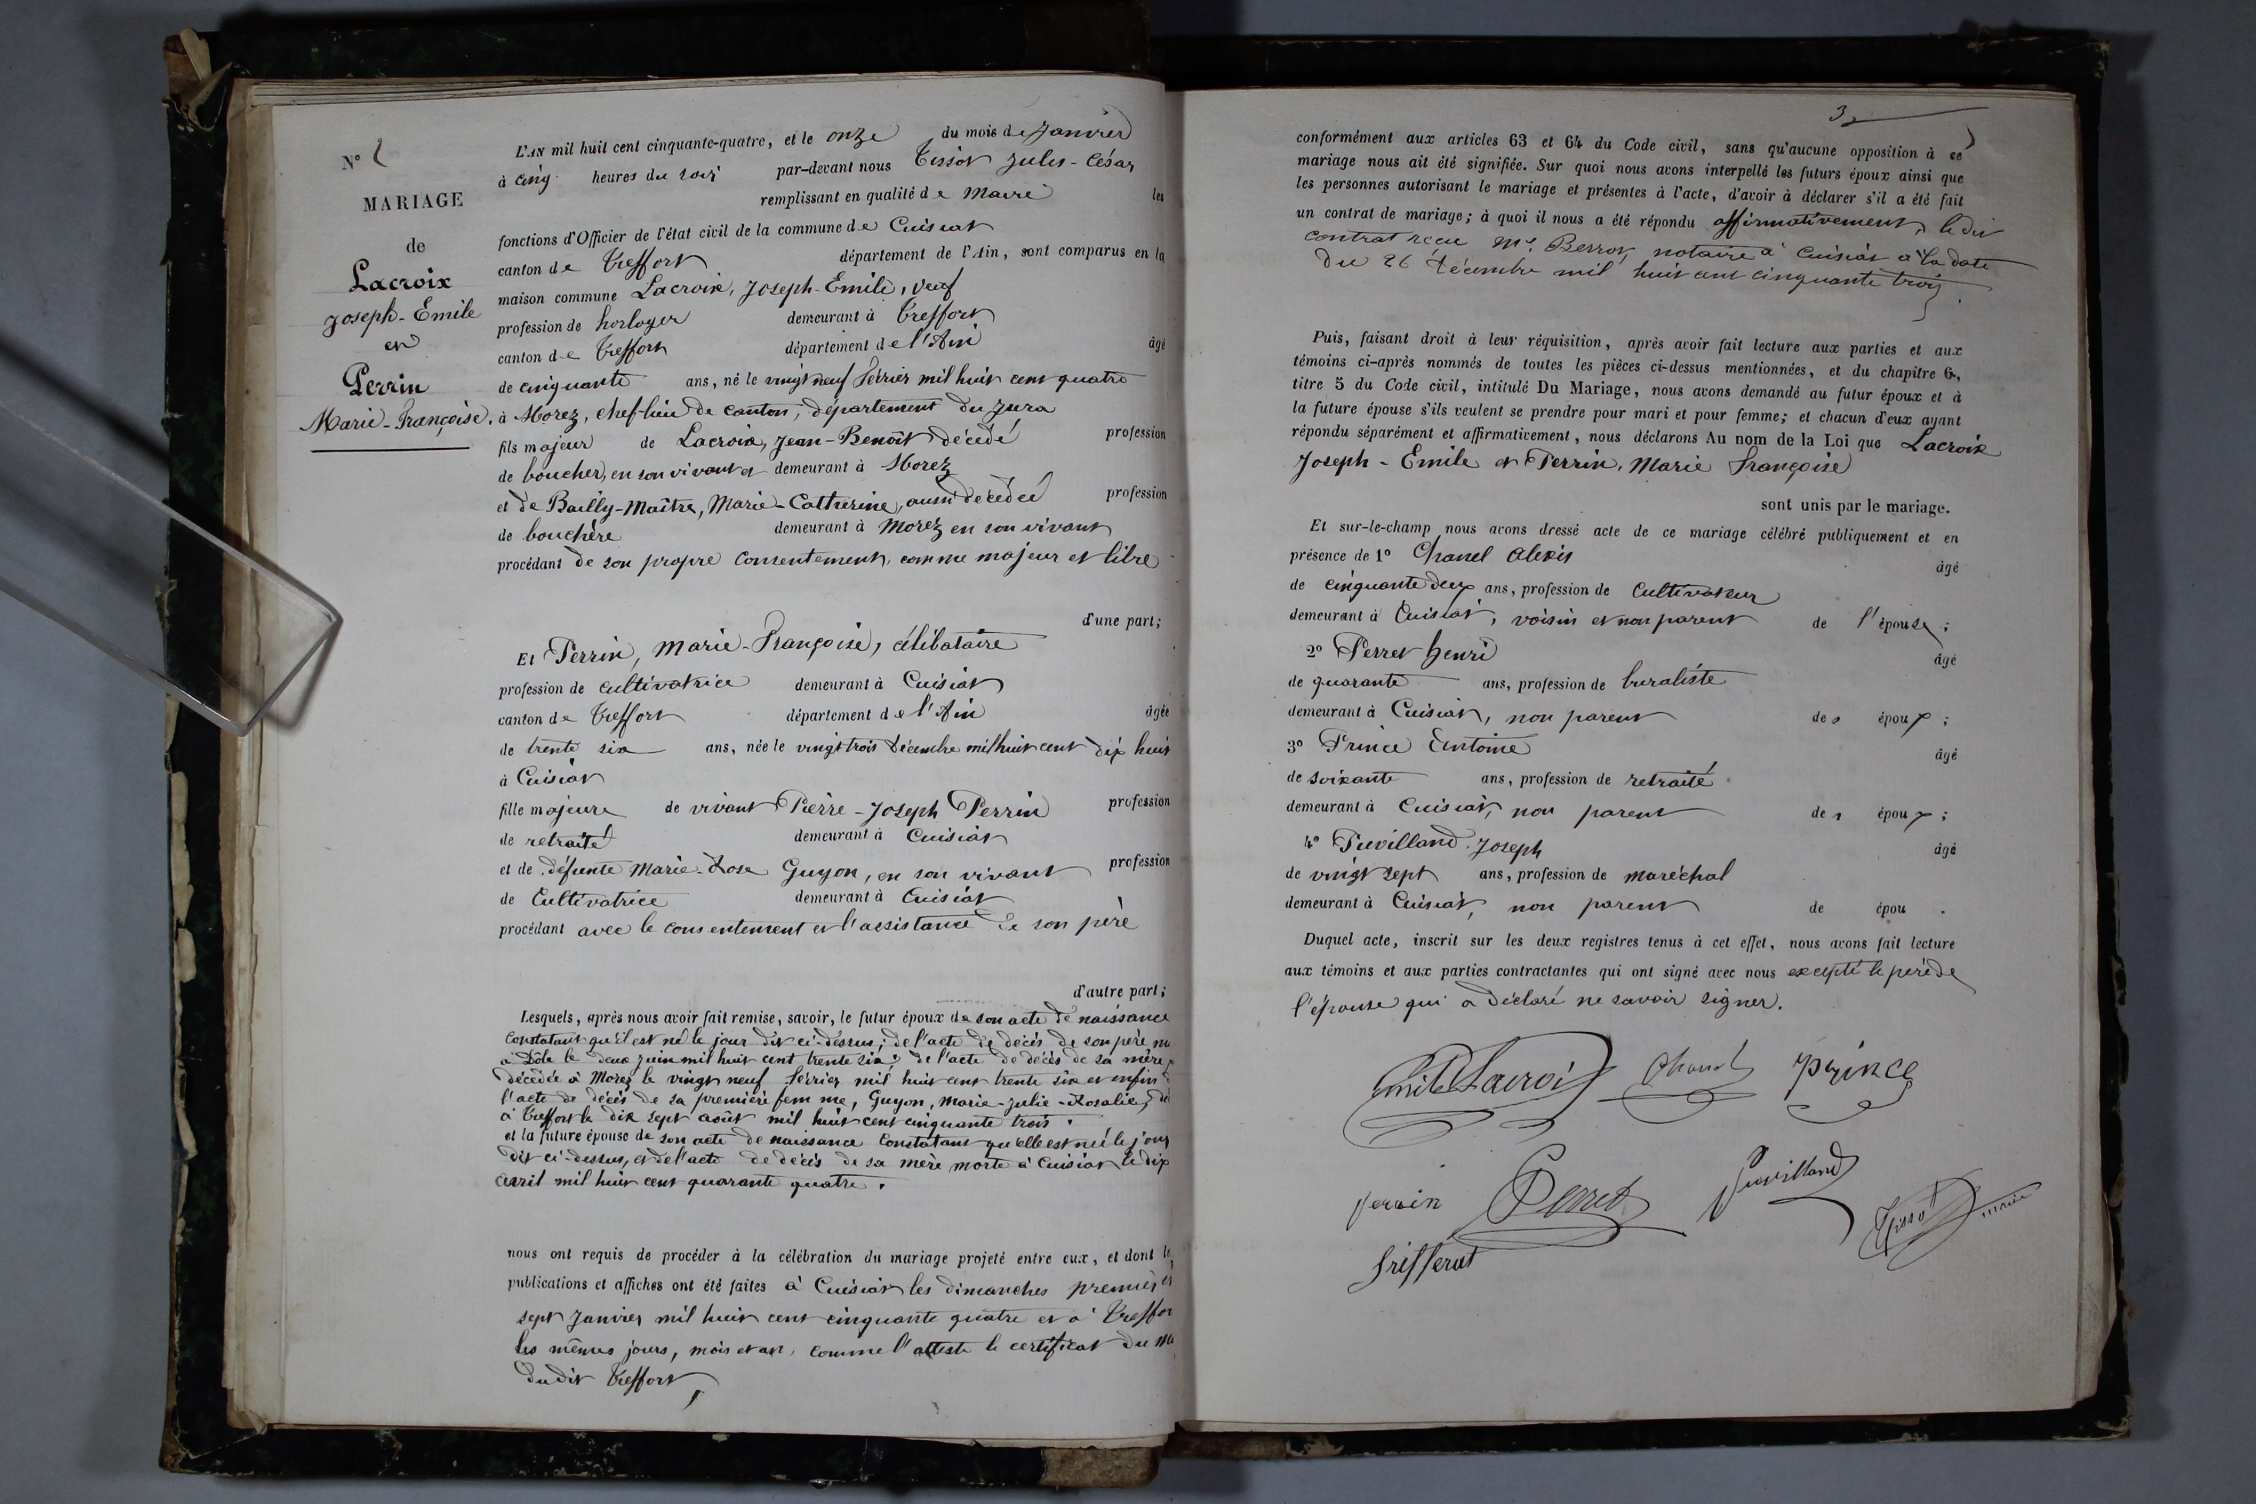 N° 2
MARIAGE
de
Lacroix
Joseph-Emile
et
Perrin
Marie-Françoise.
L'AN mil huit cent cinquante-quatre, et le onze du mois de Janvier
à cinq heures du soir par-devant nous Tissot Jules-César
remplissant en qualité de Maire les
fonctions d'Officier de l'état civil de la commune de Cuisiat
canton de Treffort département de l'Ain, sont comparus en la
maison commune Lacroix, Joseph-Emile, veuf
profession de horloger demeurant à Treffort
canton de Treffort département de l'Ain âgé
de cinquante ans, né le vingt neuf février mil huit cent quatre
à Morez, chef-lieu de canton, département du Jura
fils majeur de Lacroix, Jean-Benoît décédé profession
de boucher, en son vivant et demeurant à Morez
et de Bailly-Maître, Marie-Catherine, aussi décédée profession
de bouchère demeurant à Morez en son vivant
procédant de son propre consentement, comme majeur et libre
d'une part;
Et Perrin, Marie-Françoise, célibataire
profession de cultivatrice demeurant à Cuisiat
canton de Treffort département de l'Ain âgée
de trente six ans, née le vingt trois décembre mil huit cent dix huit
à Cuisiat
fille majeure de vivant Pierre-Joseph Perrin profession
de retraité demeurant à Cuisiat
et de défunte Marie-Rose Guyon, en son vivant profession
de Cultivatrice demeurant à Cuisiat
procédant avec le consentement et l'assistance de son père
d'autre part;
Lesquels, après nous avoir fait remise, savoir, le futur époux de son acte de naissance
constatant qu'il est né le jour dit ci-dessus; de l'acte de décès de son père, m
à Dôle le deux juin mil huit cent trente six; de l'acte de décès de sa mère,
décédée à Morez le vingt neuf février mil huit cent trente six et enfin
l'acte de décès de sa première femme, Guyon, Marie-Julie-Rosalie, dé
à Treffort le dix sept août mil huit cent cinquante trois.
et la future épouse de son acte de naissance constatant qu'elle est née le jour
dit ci-dessus, et de l'acte de décès de sa mère morte à Cuisiat le dix
avril mil huit cent quarante quatre.
nous ont requis de procéder à la célébration du mariage projeté entre eux, et dont le
publications et affiches ont été faites à Cuisiat les dimanches premier et
sept Janvier mil huit cent cinquante quatre et à Treffor
les mêmes jours, mois et an, comme l'atteste le certificat du ma
dudit Treffort
3
conformément aux articles 63 et 64 du Code civil, sans qu'aucune opposition à ce
mariage nous ait été signifiée. Sur quoi nous avons interpellé les futurs époux ainsi que
les personnes autorisant le mariage et présentes à l'acte, d'avoir à déclarer s'il a été fait
un contrat de mariage; à quoi il nous a été répondu affirmativement, le dit
contrat reçu Me. Berrot, notaire à Cuisiat à la date
du 26 décembre mil huit cent cinquante trois.
Puis, faisant droit à leur réquisition, après avoir fait lecture aux parties et aux
témoins ci-après nommés de toutes les pièces ci-dessus mentionnées, et du chapitre 6,
titre 5 du Code civil, intitulé Du Mariage, nous avons demandé au futur époux et à
la future épouse s'ils veulent se prendre pour mari et pour femme; et chacun d'eux ayant
répondu séparément et affirmativement, nous déclarons Au nom de la Loi que Lacroix
Joseph-Emile et Perrin, Marie françoise
sont unis par le mariage.
Et sur-le-champ nous avons dressé acte de ce mariage célébré publiquement et en
présence de 1° Chanel Alexis âgé
de cinquante deux ans, profession de Cultivateur
demeurant à Cuisiat, voisin et non parent de l'épouse;
2° Perret henri âgé
de quarante ans, profession de buraliste
demeurant à Cuisiat, non parent des époux;
3° Prince Antoine âgé
de soixante ans, profession de retraité
demeurant à Cuisiat, non parent des époux;
4° Puvilland Joseph âgé
de vingt sept ans, profession de maréchal
demeurant à Cuisiat, non parent de épou .
Duquel acte, inscrit sur les deux registres tenus à cet effet, nous avons fait lecture
aux témoins et aux parties contractantes qui ont signé avec nous excepté le père de
l'épouse qui a déclaré ne savoir signer.
Emile Lacroix Chanel prince
perrin Perret Puvilland Tissot maire